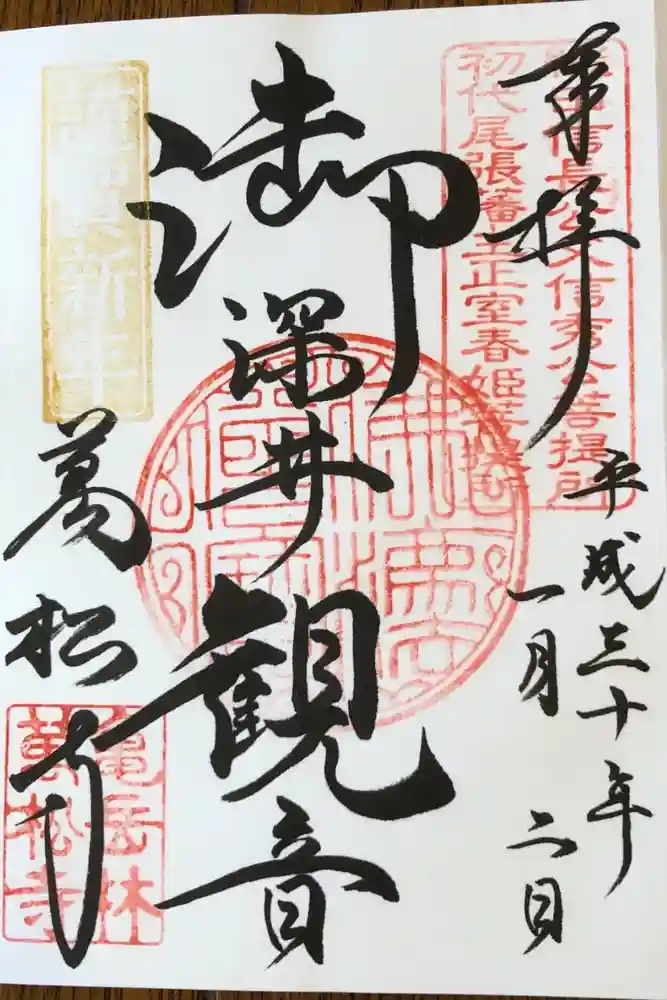 奉拝
信長公父信秀公菩提所
初代尾張藩主正室春姫菩提所
平成三十年
一月 二日
御深井観音
新年
萬松寺
亀岳林
萬松寺